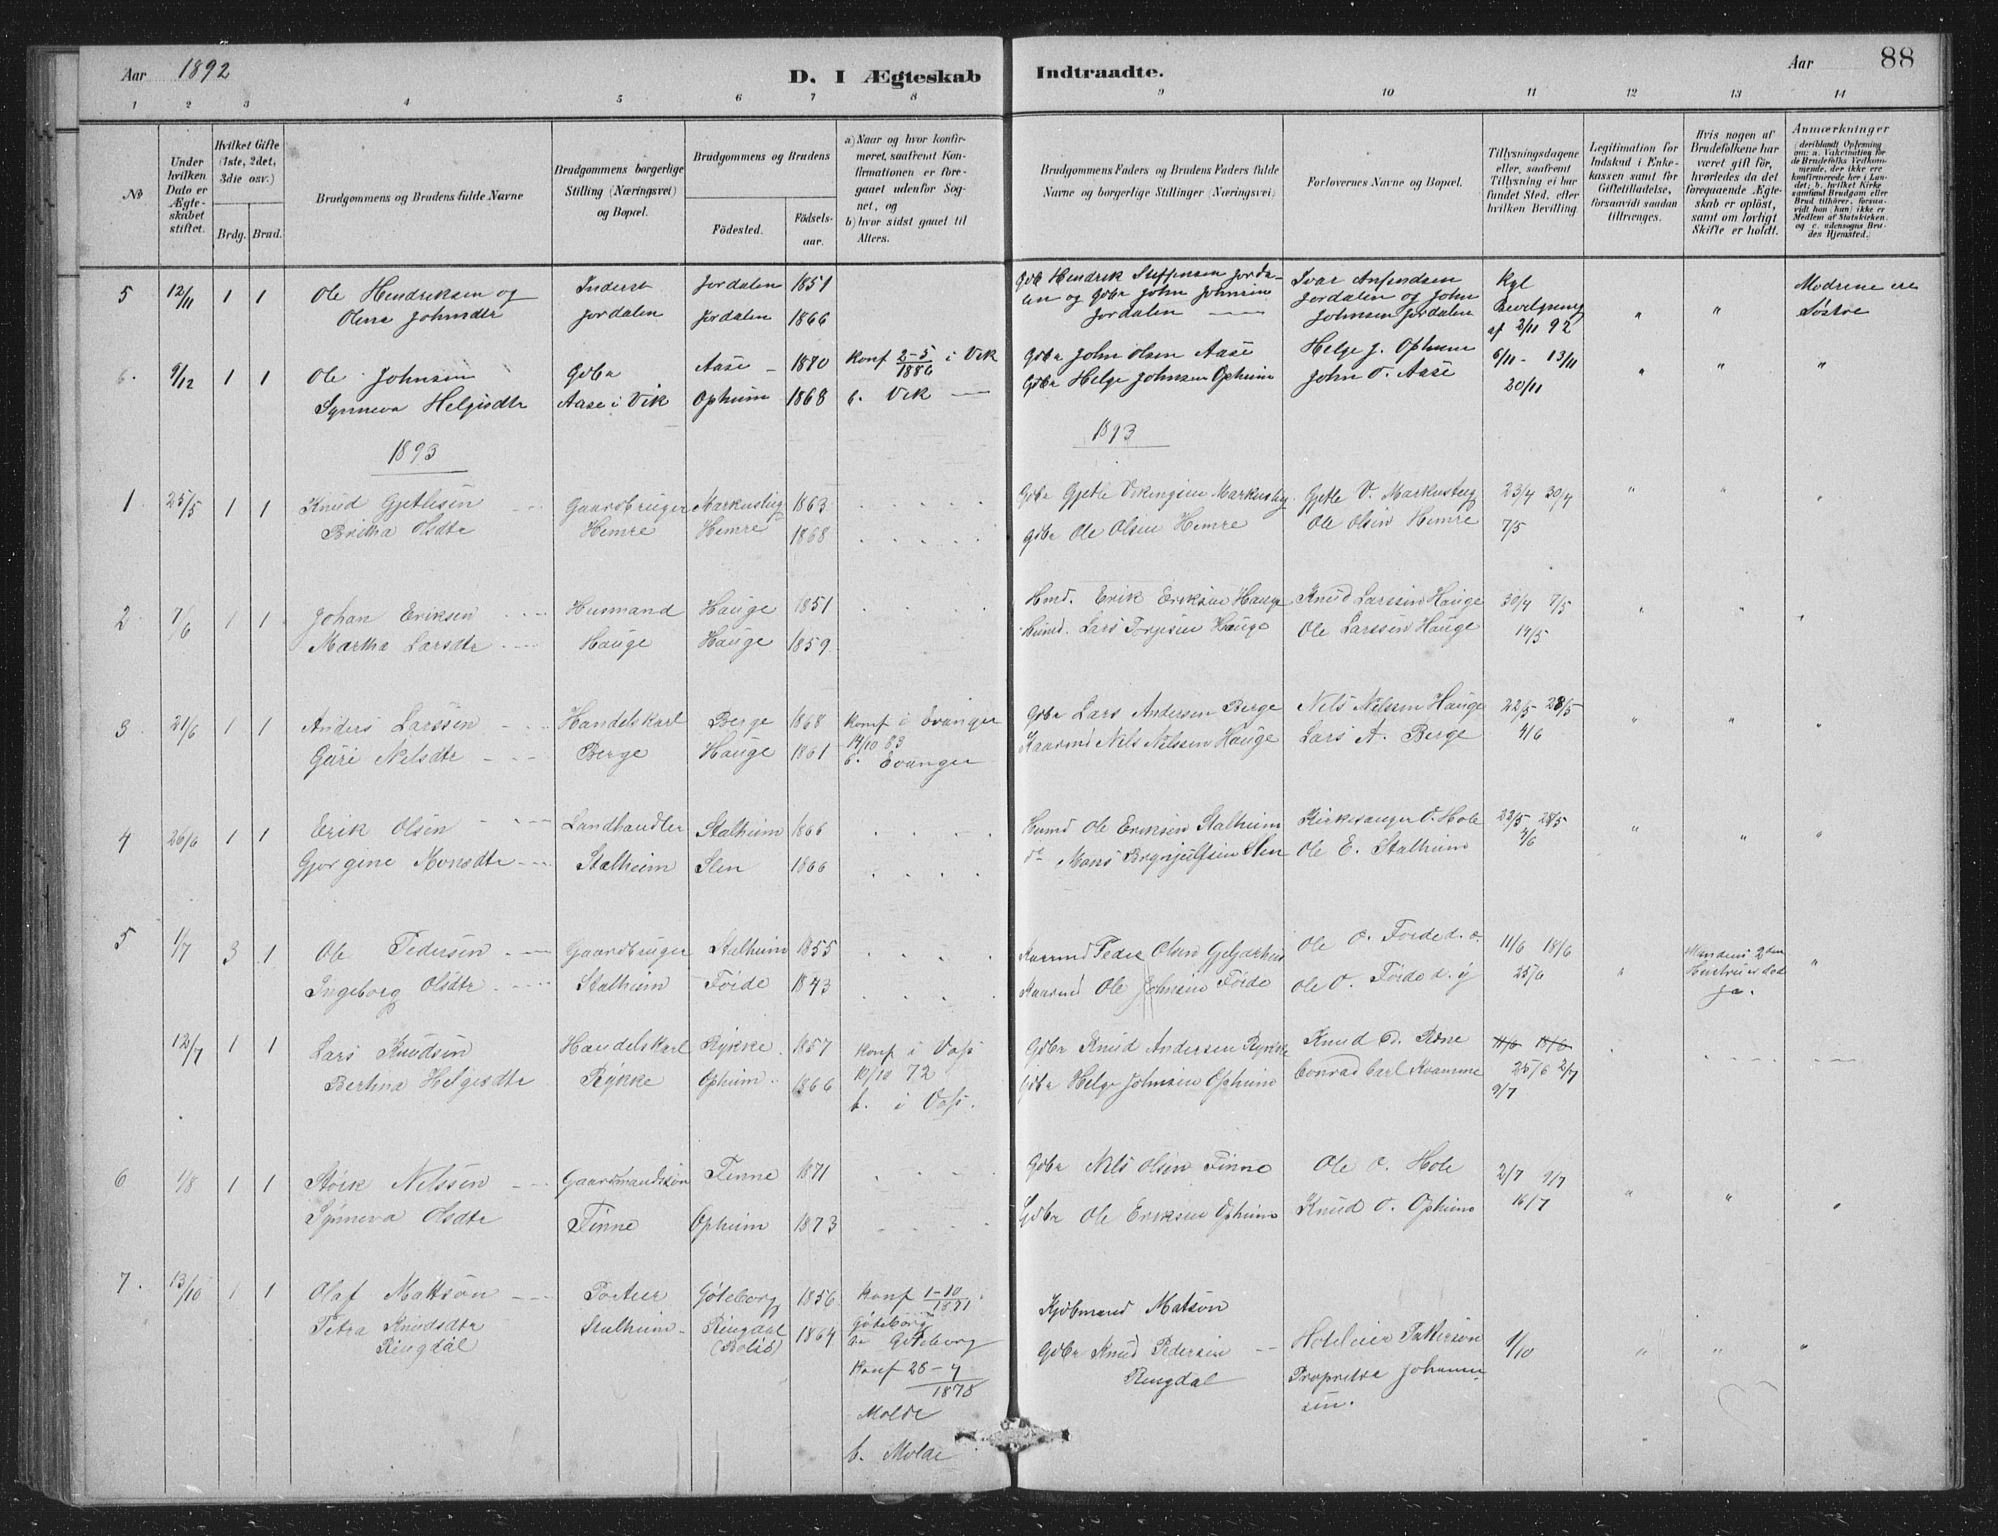 Aar 1892
D. I Ægteskab Indtraadte.
Aar
88
1 2 3 4 5 6 7 8 9 10 11 12 13 14
No
Under hvilken Dato er Ægteskabet stiftet.
Hvilket Gifte (1ste, 2det, 3die osv.)
Brdg. Brud.
Brudgommens og Brudens fulde Navne
Brudgommens borgerlige Stilling (Næringsvei) og Bopæl.
Brudgommens og Brudens
Födested.
Födselsaar.
a) Naar og hvor konfirmeret, saafremt Konfirmationen er foregaaet udenfor Sognet, og
b) hvor sidst gaaet til Alters.
Brudgommens Faders og Brudens Faders fulde Navne og borgerlige Stillinger (Næringsvei).
Forlovernes Navne og Bopæl.
Tillysningsdagene eller, saafremt Tillysning ei har fundet Sted, efter hvilken Bevilling.
Legitimation for Indskud i Enkekassen samt for Giftetilladelse, forsaavidt saadan tiltrænges.
Hvis nogen af Brudefolkene har været gift för, hvorledes da det foregaaende Ægteskab er oplöst, samt om lovligt Skifte er holdt.
Anmærkninger (deriblandt Oplysning om: a. Vakcination for de Brudefolks Vedkommende, der ikke ere konfirmerede her i Landet; b. hvilket Kirkesamfund Brudgom eller Brud tilhörer, forsaavidt han (hun) ikke er Medlem af Statskirken, og c. udensogns Brudes Hjemsted.)
5 12/11 1 1 Ole Hendriksen og Inderst Jordalen 1851 Gdbr Hendrik Steffensen Jorda- Ivar Anfindsen Kgl Mødrene ere
Olena Johnsdtr Jordalen Jordalen 1866 len og Gdbr John Johnsen Jordalen og John Bevilgning " " Søstre
Jordalen Johnsen Jordalen af 2/11 92
6. 9/12 1 1 Ole Johnsen Gdbr Aase 1870 Konf 2-5/1886 i Vik Gdbr John Olsen Aase Helge J. Opheim 6/11 - 13/11 " " "
Synneva Helgesdtr Aase i Vik Opheim 1868 b. Vik Gdbr Helge Johnsen Opheim John O. Aase 20/11
1893 1893
1 25/5 1 1 Knud Gjetlesen Gaardbruger Markusteig 1863 Gdbr Gjetle Vikingsen Markusteig. Gjetle V. Markusteig 23/4 30/4 " " "
Britha Olsdtr Hemre Hemre 1868 Gdbr Ole Olsen Hemre Ole Olsen Hemre 7/5
2 7/6 1 1 Johan Eriksen Husmand Hauge 1851 Hmd. Erik Eriksen Hauge Knud Larssen Hauge 30/4 7/5 " " "
Martha Larsdtr Hauge Hauge 1859 Husmd. Lars Torjesen Hauge Ole Larssen Hauge 14/5
3 21/6 1 1 Anders Larssen Handelskarl Berge 1868 Konf i Evanger Gdbr Lars Andersen Berge Nils Nilssen Hauge 22/5 28/5 " " "
Guri Nilsdtr Berge Hauge 1861 14/10 83 Kaarmd Nils Nilssen Hauge Lars A. Berge 4/6
b. Evanger
4 26/6 1 1 Erik Olsen Landhandler Stalheim 1866 Husmd Ole Eriksen Stalheim Kirkesanger O. Hole 22/5 28/5 " " "
Gjørgine Monsdtr Stalheim Slen 1866 do Mons Brynjulfsen Slen Ole E. Stalheim 4/6
5 1/7 3 1 Ole Pedersen Gaardbruger Stalheim 1855 Kaarmd Peder Olsen Ole O. Førde d. æ. 11/6 18/6 Mandens 2den
Ingeborg Olsdtr Stalheim Förde 1843 Kaarmd Ole Johnsen Förde Ole O. Förde d. y 25/6 " Hustru er død "
ja.
12/7 1 1 Lars Knudsen Handelskarl Rykke 1857 Konf i Voss Gdbr Knud Andersen Rykke Knud 11/6 18/6
Bertina Helgesdtr Rykke Opheim 1866 10/10 72 Gdbr Helge Johnsen Opheim Conrad Carl Kvamme 25/6 2/7
b. i Voss. 9/7
6 1/8 1 1 Størk Nilssen Gaardmandssøn Finne 1871 Gdbr Nils Olsen Finne Ole O. Hole 2/7 9/7 " " "
Synneva Olsdtr Finne Opheim 1873 Gdbr Ole Eriksen Opheim Knud O. Opheim 16/7
7. 13/10 1 1 Olaf Mattson Portier Göteborg 1856 Konf 1-10/1871 Kjöbmand Matson
Petra Knudsdtr Stalheim Ringdal 1864 Göteborg Gdbr Knud Pedersen Hoteleier Patterson 1/10 " " "
Ringdal (Bolsö) b. Göteborg Ringdal Proprietær Johannesen.
Konf 28-4/1878
Molde
b. Molde